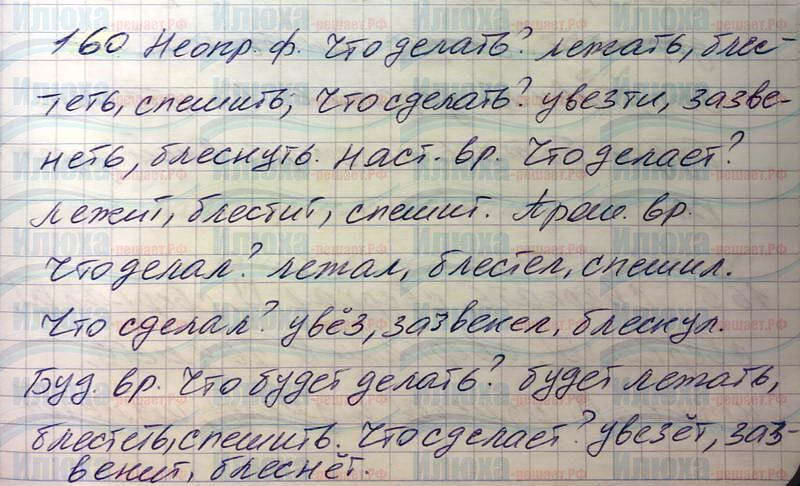 160. Неопр. ф. Что делать? лежать, блес-
теть, спешить; Что сделать? увезти, зазве-
неть, блеснуть. Наст. вр. Что делает?
лежит, блестит, спешит. Прош. вр.
Что делал? лежал, блестел, спешил.
Что сделал? увёз, зазвенел, блеснул.
Буд. вр. Что будет делать? будет лежать,
блестеть, спешить. Что сделает? увезёт, заз-
венит, блеснёт.
Илюха-решает.рф